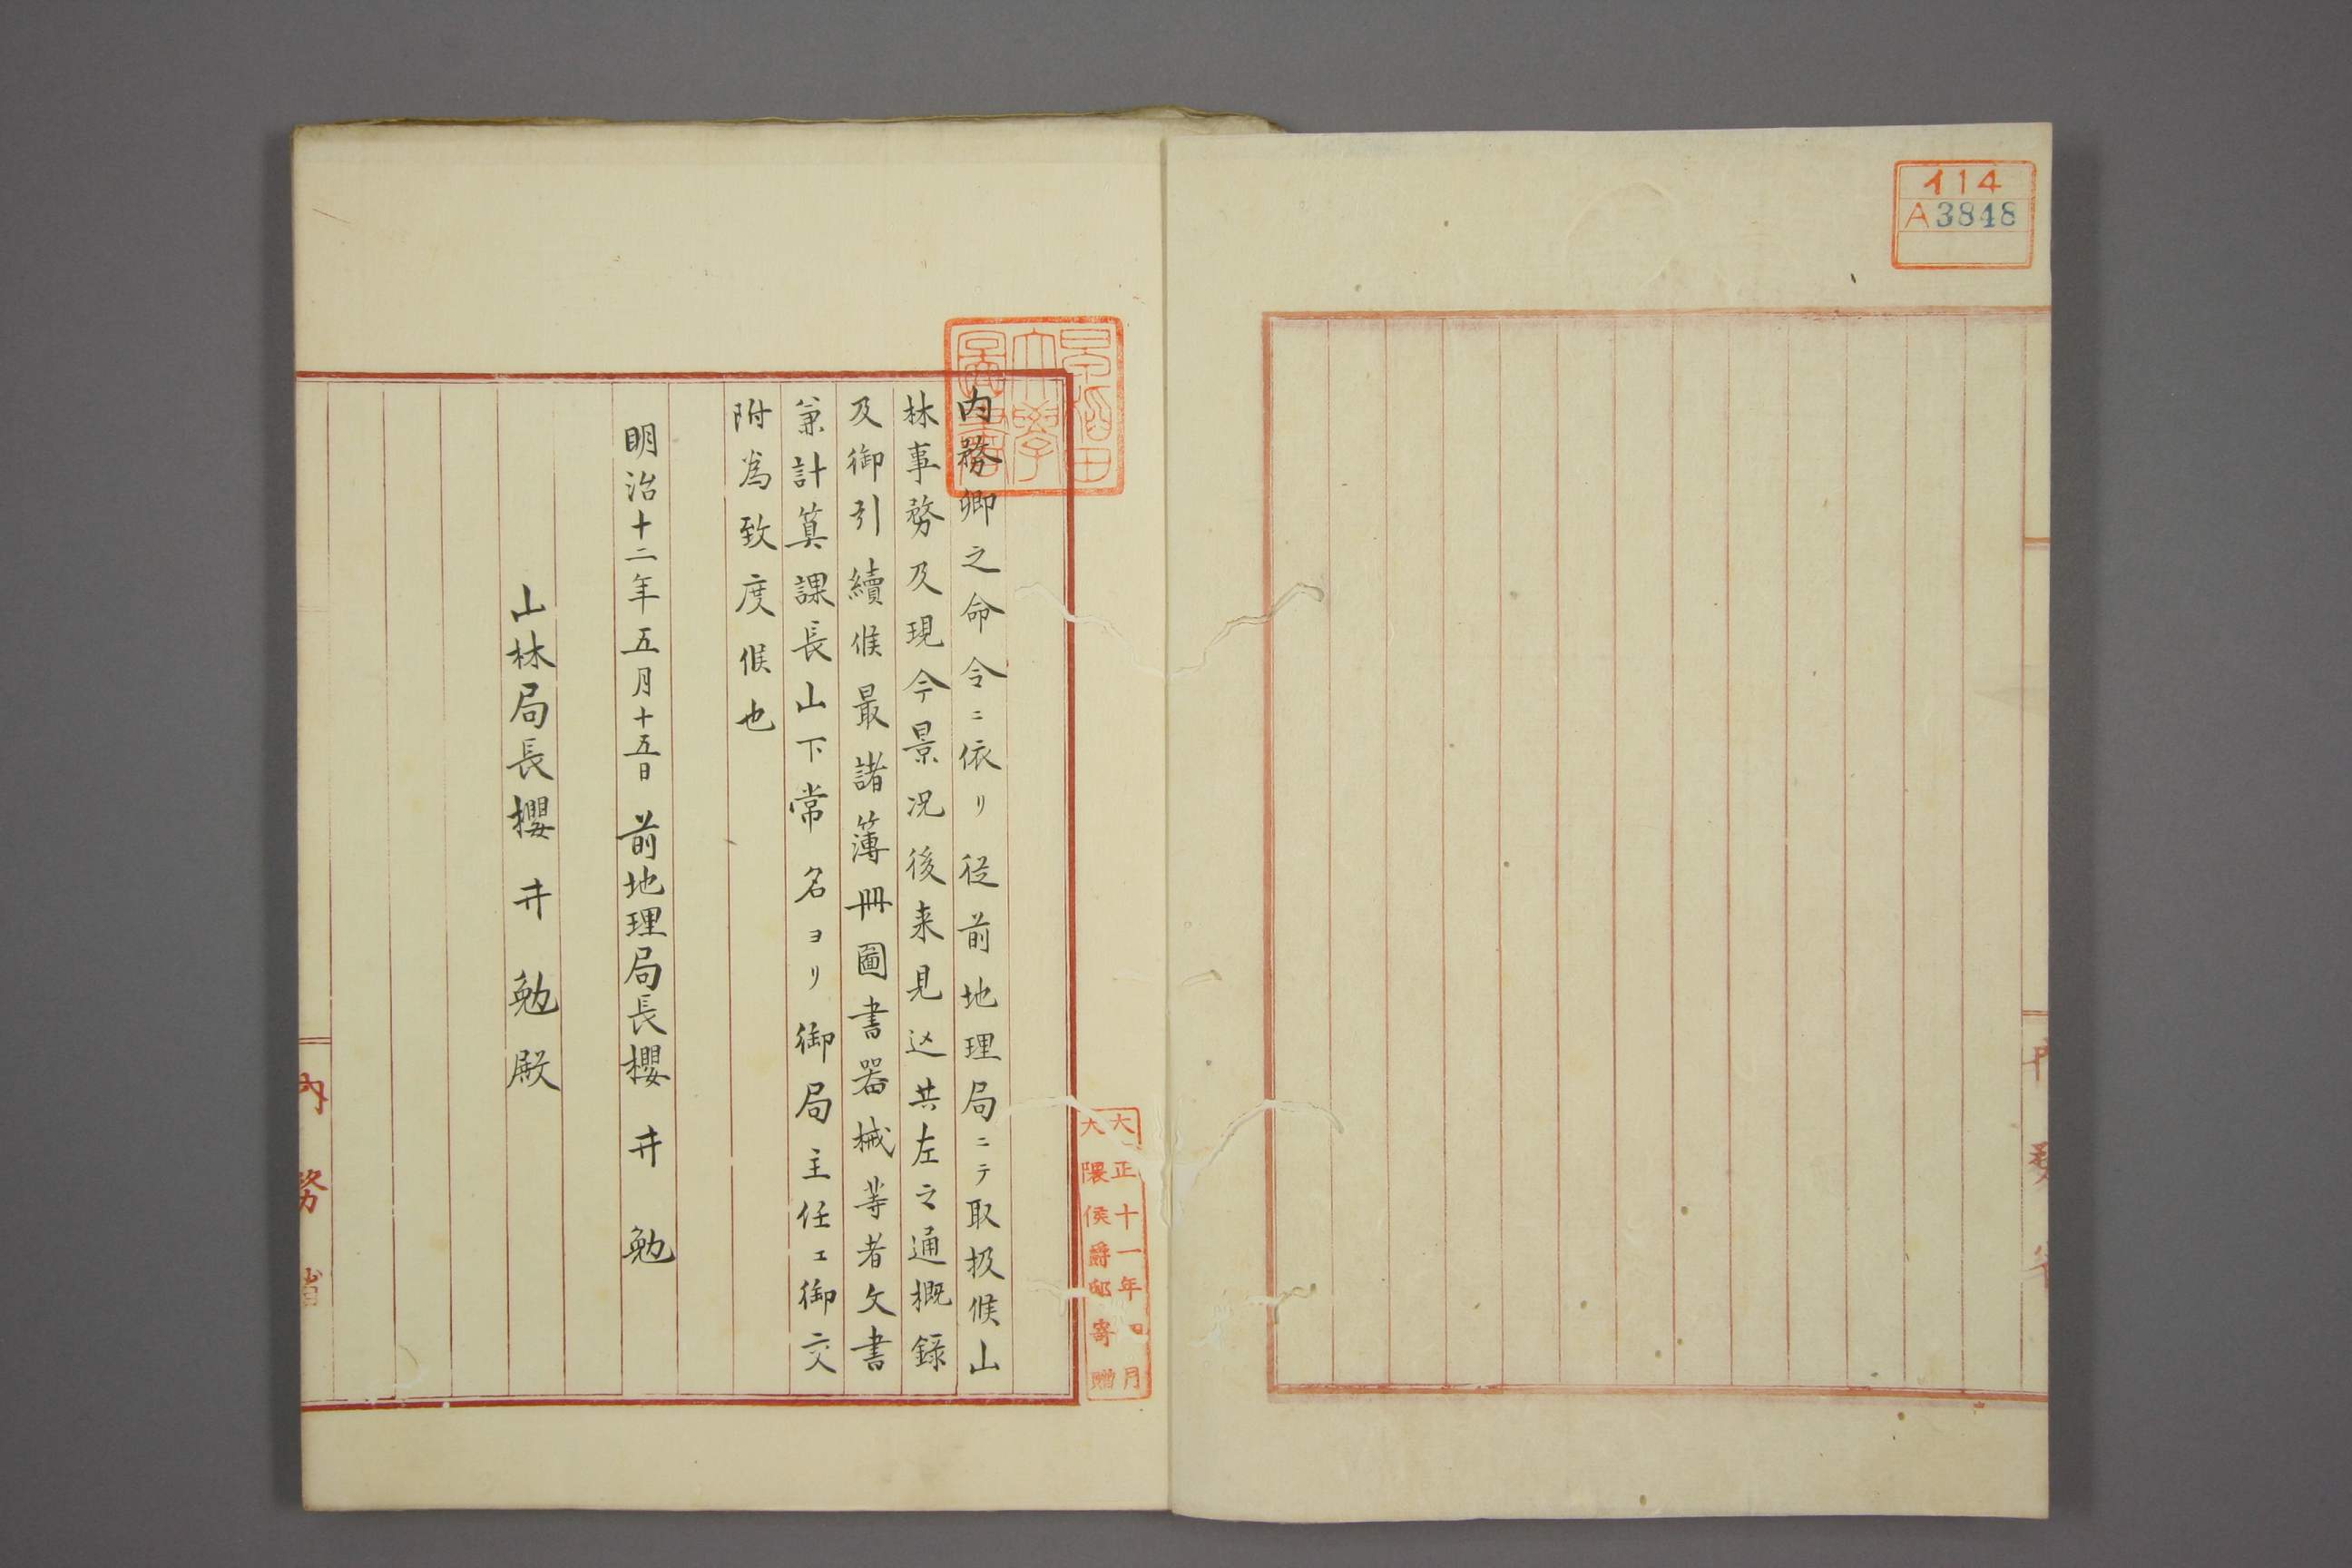 イ14
A3848
早稲田
大學
圖書
大正十一年四月
大隈侯爵邸寄贈
内務卿之命令ニ依リ従前地理局ニテ取扱候山
林事務及現今景況後来見込共左之通概録
及御引續候最諸簿冊圖書器械等者文書
兼計算課長山下常名ヨリ御局主任エ御交
附為致度候也
明治十二年五月十五日 前地理局長櫻井勉
山林局長櫻井勉殿
内務省